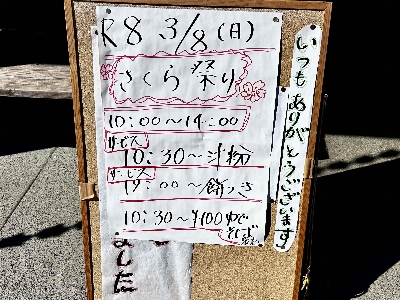 R8 3/8(日)
さくら祭り
10:00〜14:00
サービス
10:30〜汁粉
サービス
12:00〜餅つき
10:30〜¥100ゆで
そば
ました
いつもありがとうございます